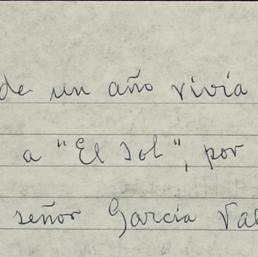 de un año vivía
a "El Sol", por
señor García Val